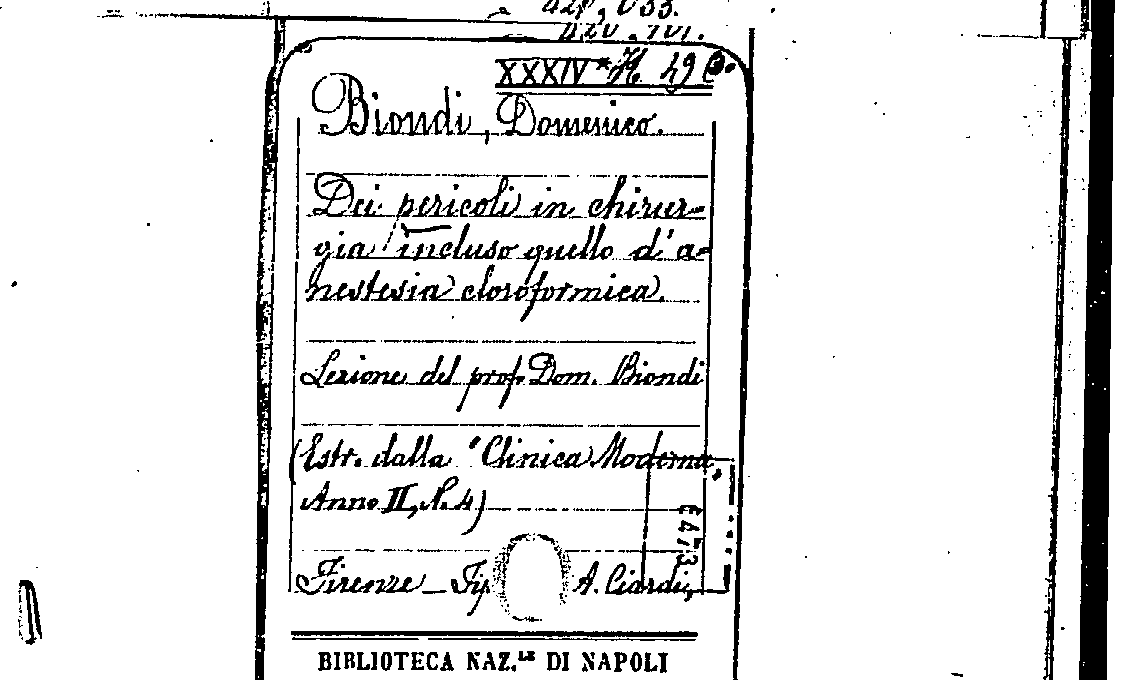 XXXIV * H 49
Biondi, Domenico.
Dei pericoli in chirur-
gia incluso quello d'a-
nestesia cloroformica.
Lezione del prof. Dom. Biondi
(Estr. dalla "Clinica Moderna,
Anno II, N. 4)
Firenze _ Tip. A. Ciardi,
BIBLIOTECA NAZ.LE DI NAPOLI